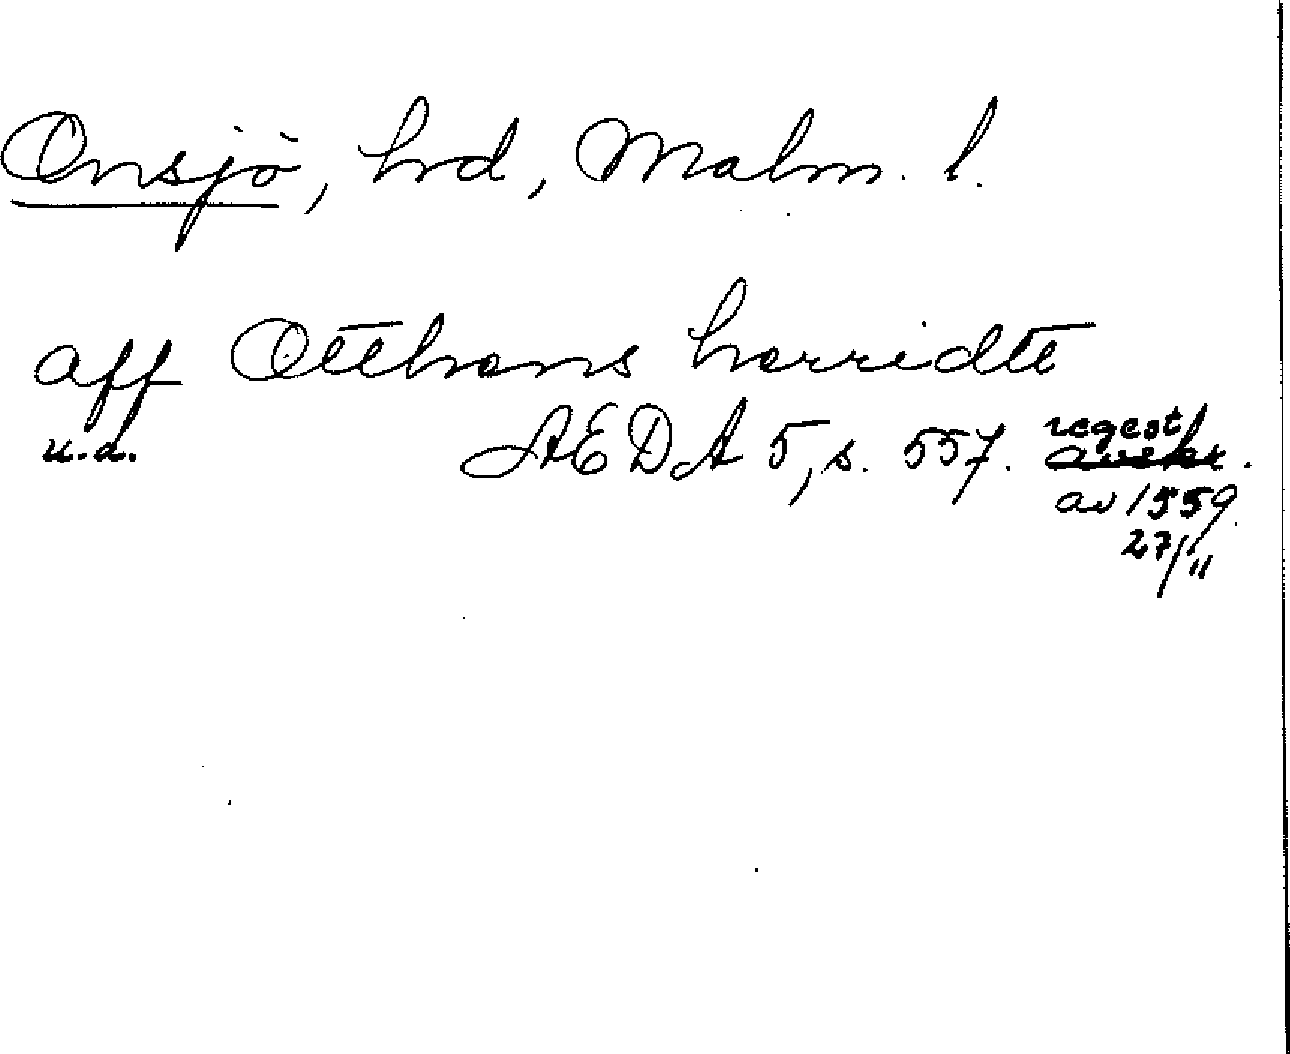 Onsjö, hrd, Malm. l.
aff Otthens herridtt
u.d. AEDA 5, s. 557. regest
avskr.
av 1559
27/11